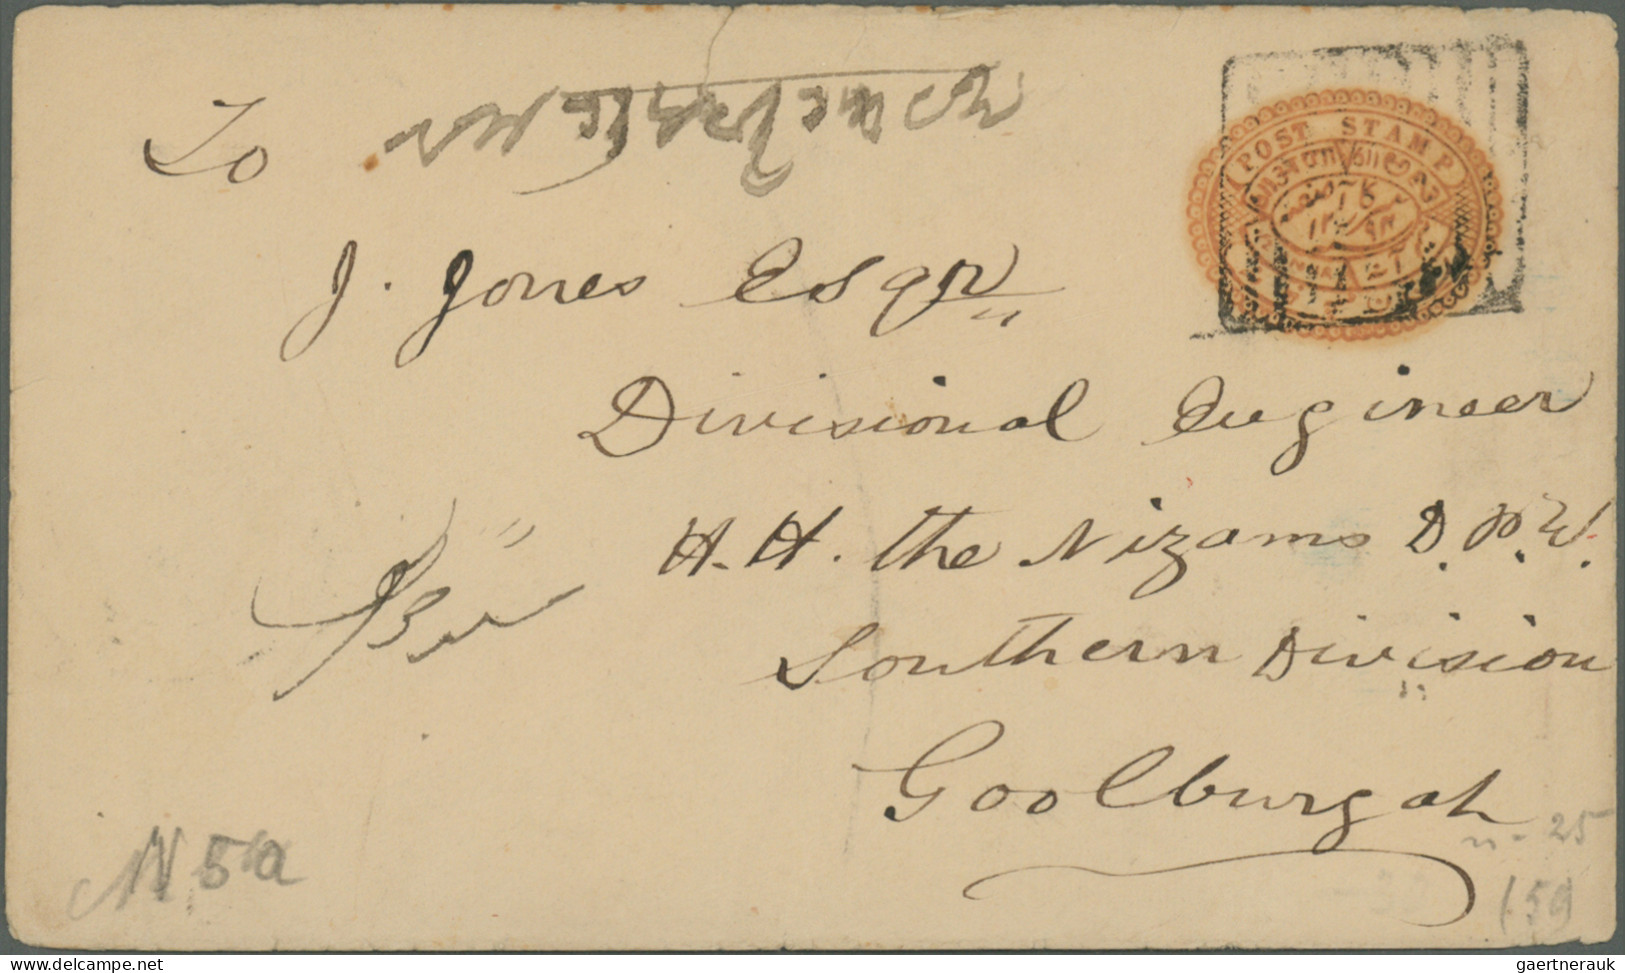 To
J. Jones Esqr
Divisional Engineer
H. H. the Nizams D. P. W.
Southern Division
Goolburgah
POST STAMP
N 5a
25
159
www.delcampe.net
gaertnerauk